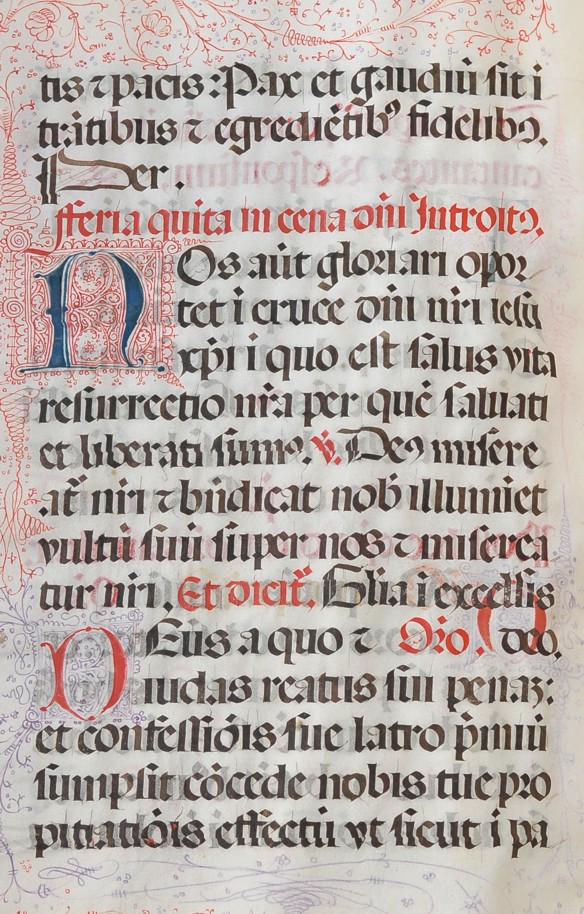 tis ⁊ pacis: Pax et gaudiū sit ī
trātibus ⁊ egrediētibꝰ fidelibꝰ.
Per.
fferia quīta in cena dn̄i Introitꝰ.
NOs aūt gloriari opor
tet ī cruce dn̄i nr̄i iesu
xp̄i ī quo est salus vita
resurrectio nr̄a per quē saluati
et liberati sumꝰ. ℣. Deꝰ misere
at̄ nr̄i ⁊ bn̄dicat nob̄ illumīet
vultū suū super nos ⁊ miserea
tur nr̄i. Et dicit̄. Gl̄ia ī excelsis
DEus a quo ⁊ Or̄o. deo.
iudas reatus sui penaꝫ:
et confessiōis sue latro p̄miū
sumpsit cōcede nobis tue pro
pitiatiōis effectū vt sicut ī pa